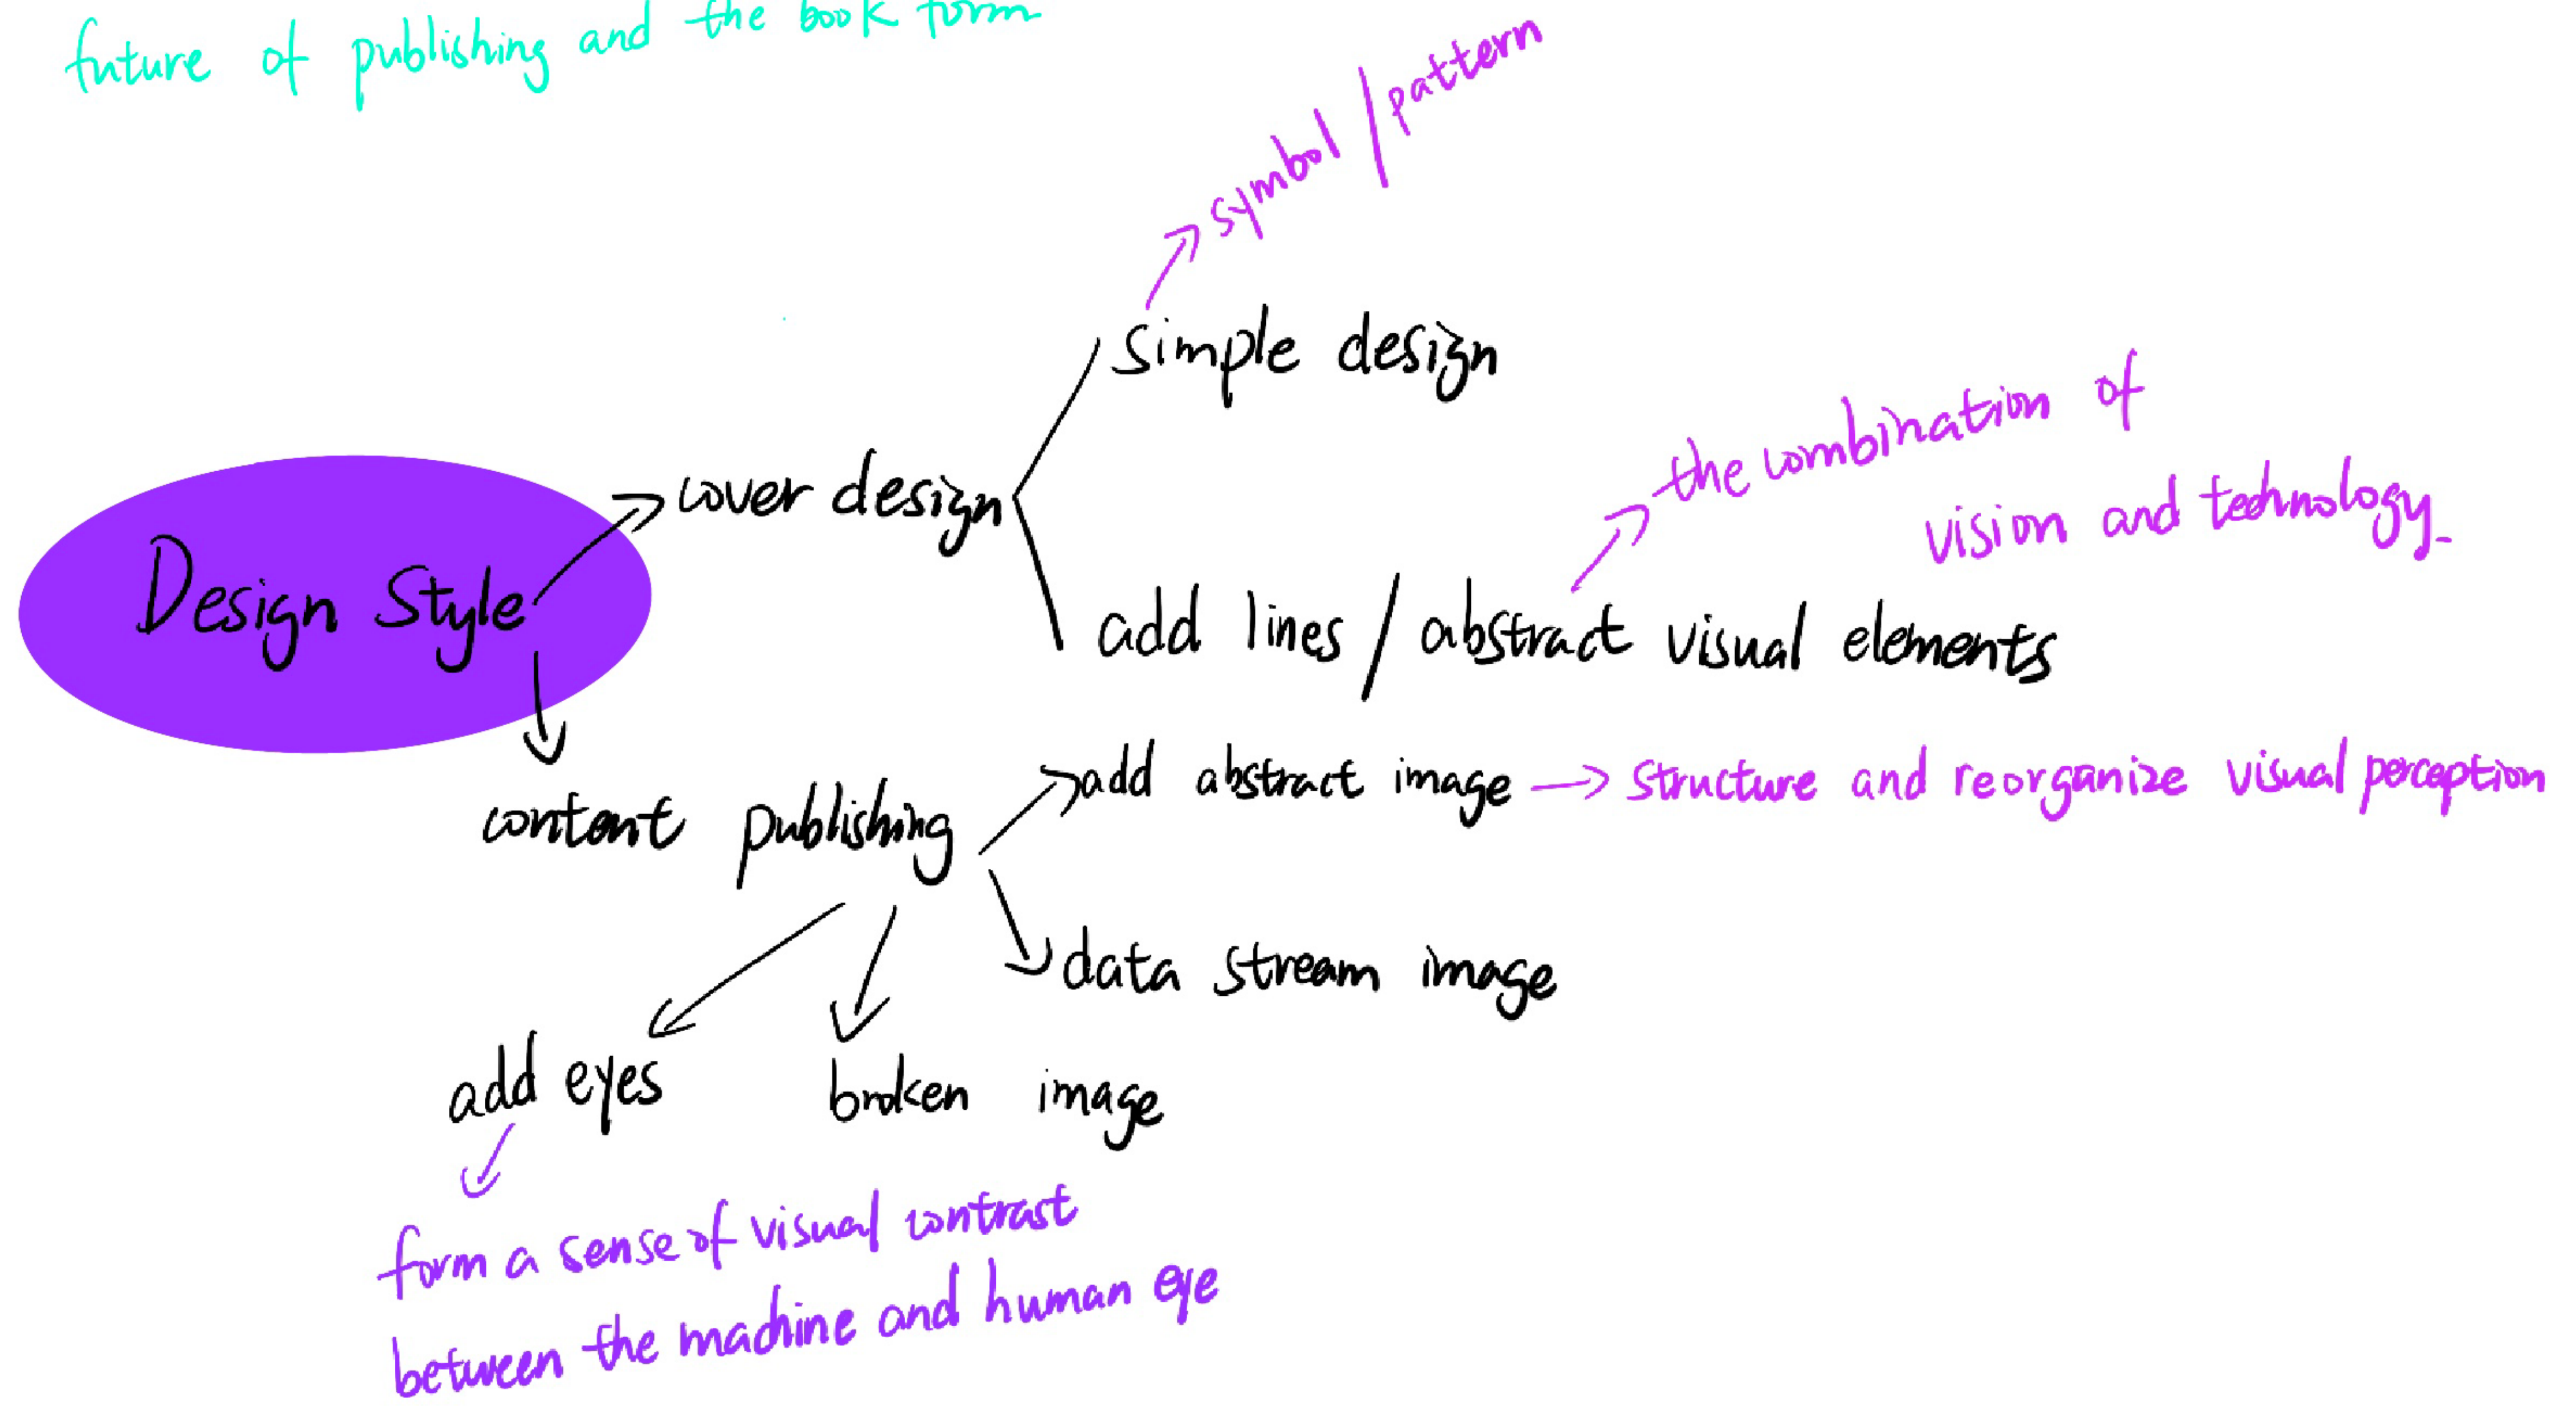 future of publishing and the book form
symbol/pattern
simple design
the combination of
vision and technology
cover design
Design Style
add lines / abstract visual elements
add abstract image
structure and reorganize visual perception
content publishing
data stream image
add eyes
broken image
form a sense of visual contrast
between the machine and human eye